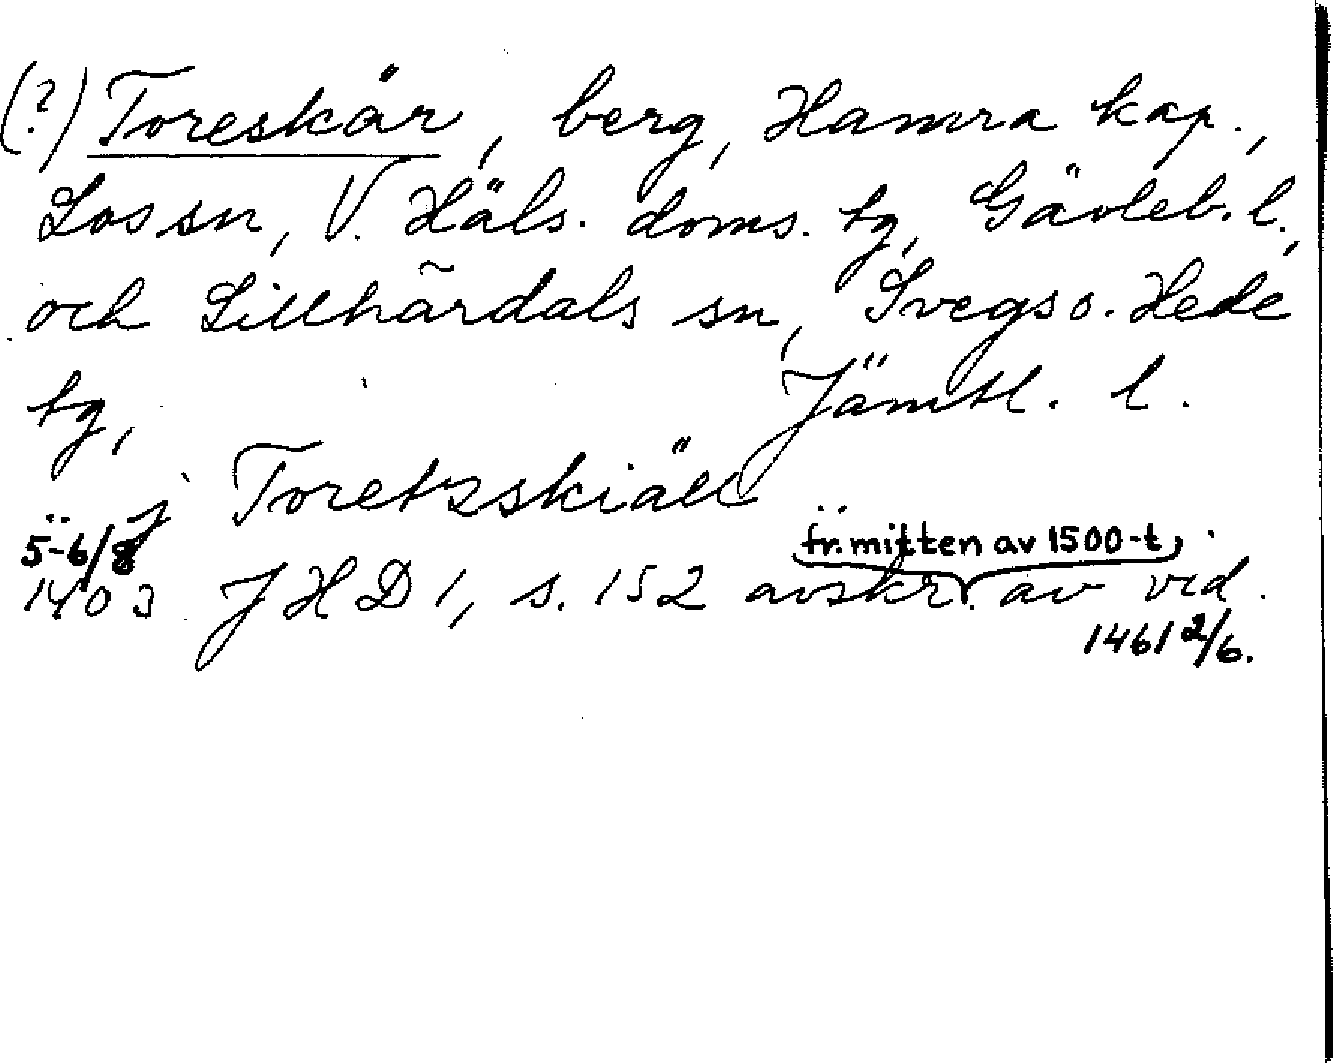 (?) Toreskär, berg, Hamra kap.,
Los sn, V. Häls. doms. tg, Gävleb. l.,
och Lillhärdals sn, Svegs o. Hede
tg, Jämtl. l.
j Toretzskiäll
5-6/8 fr. mitten av 1500-t.
1403 JHD 1, s. 152 avskr. av vid.
1461 2/6.